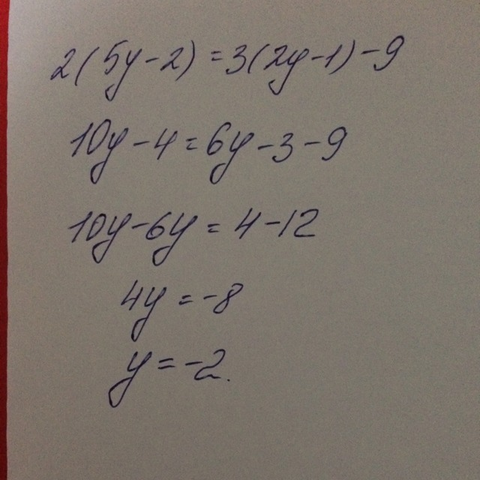 2(5y-2)=3(2y-1)-9
10y-4=6y-3-9
10y-6y=4-12
4y=-8
y=-2.